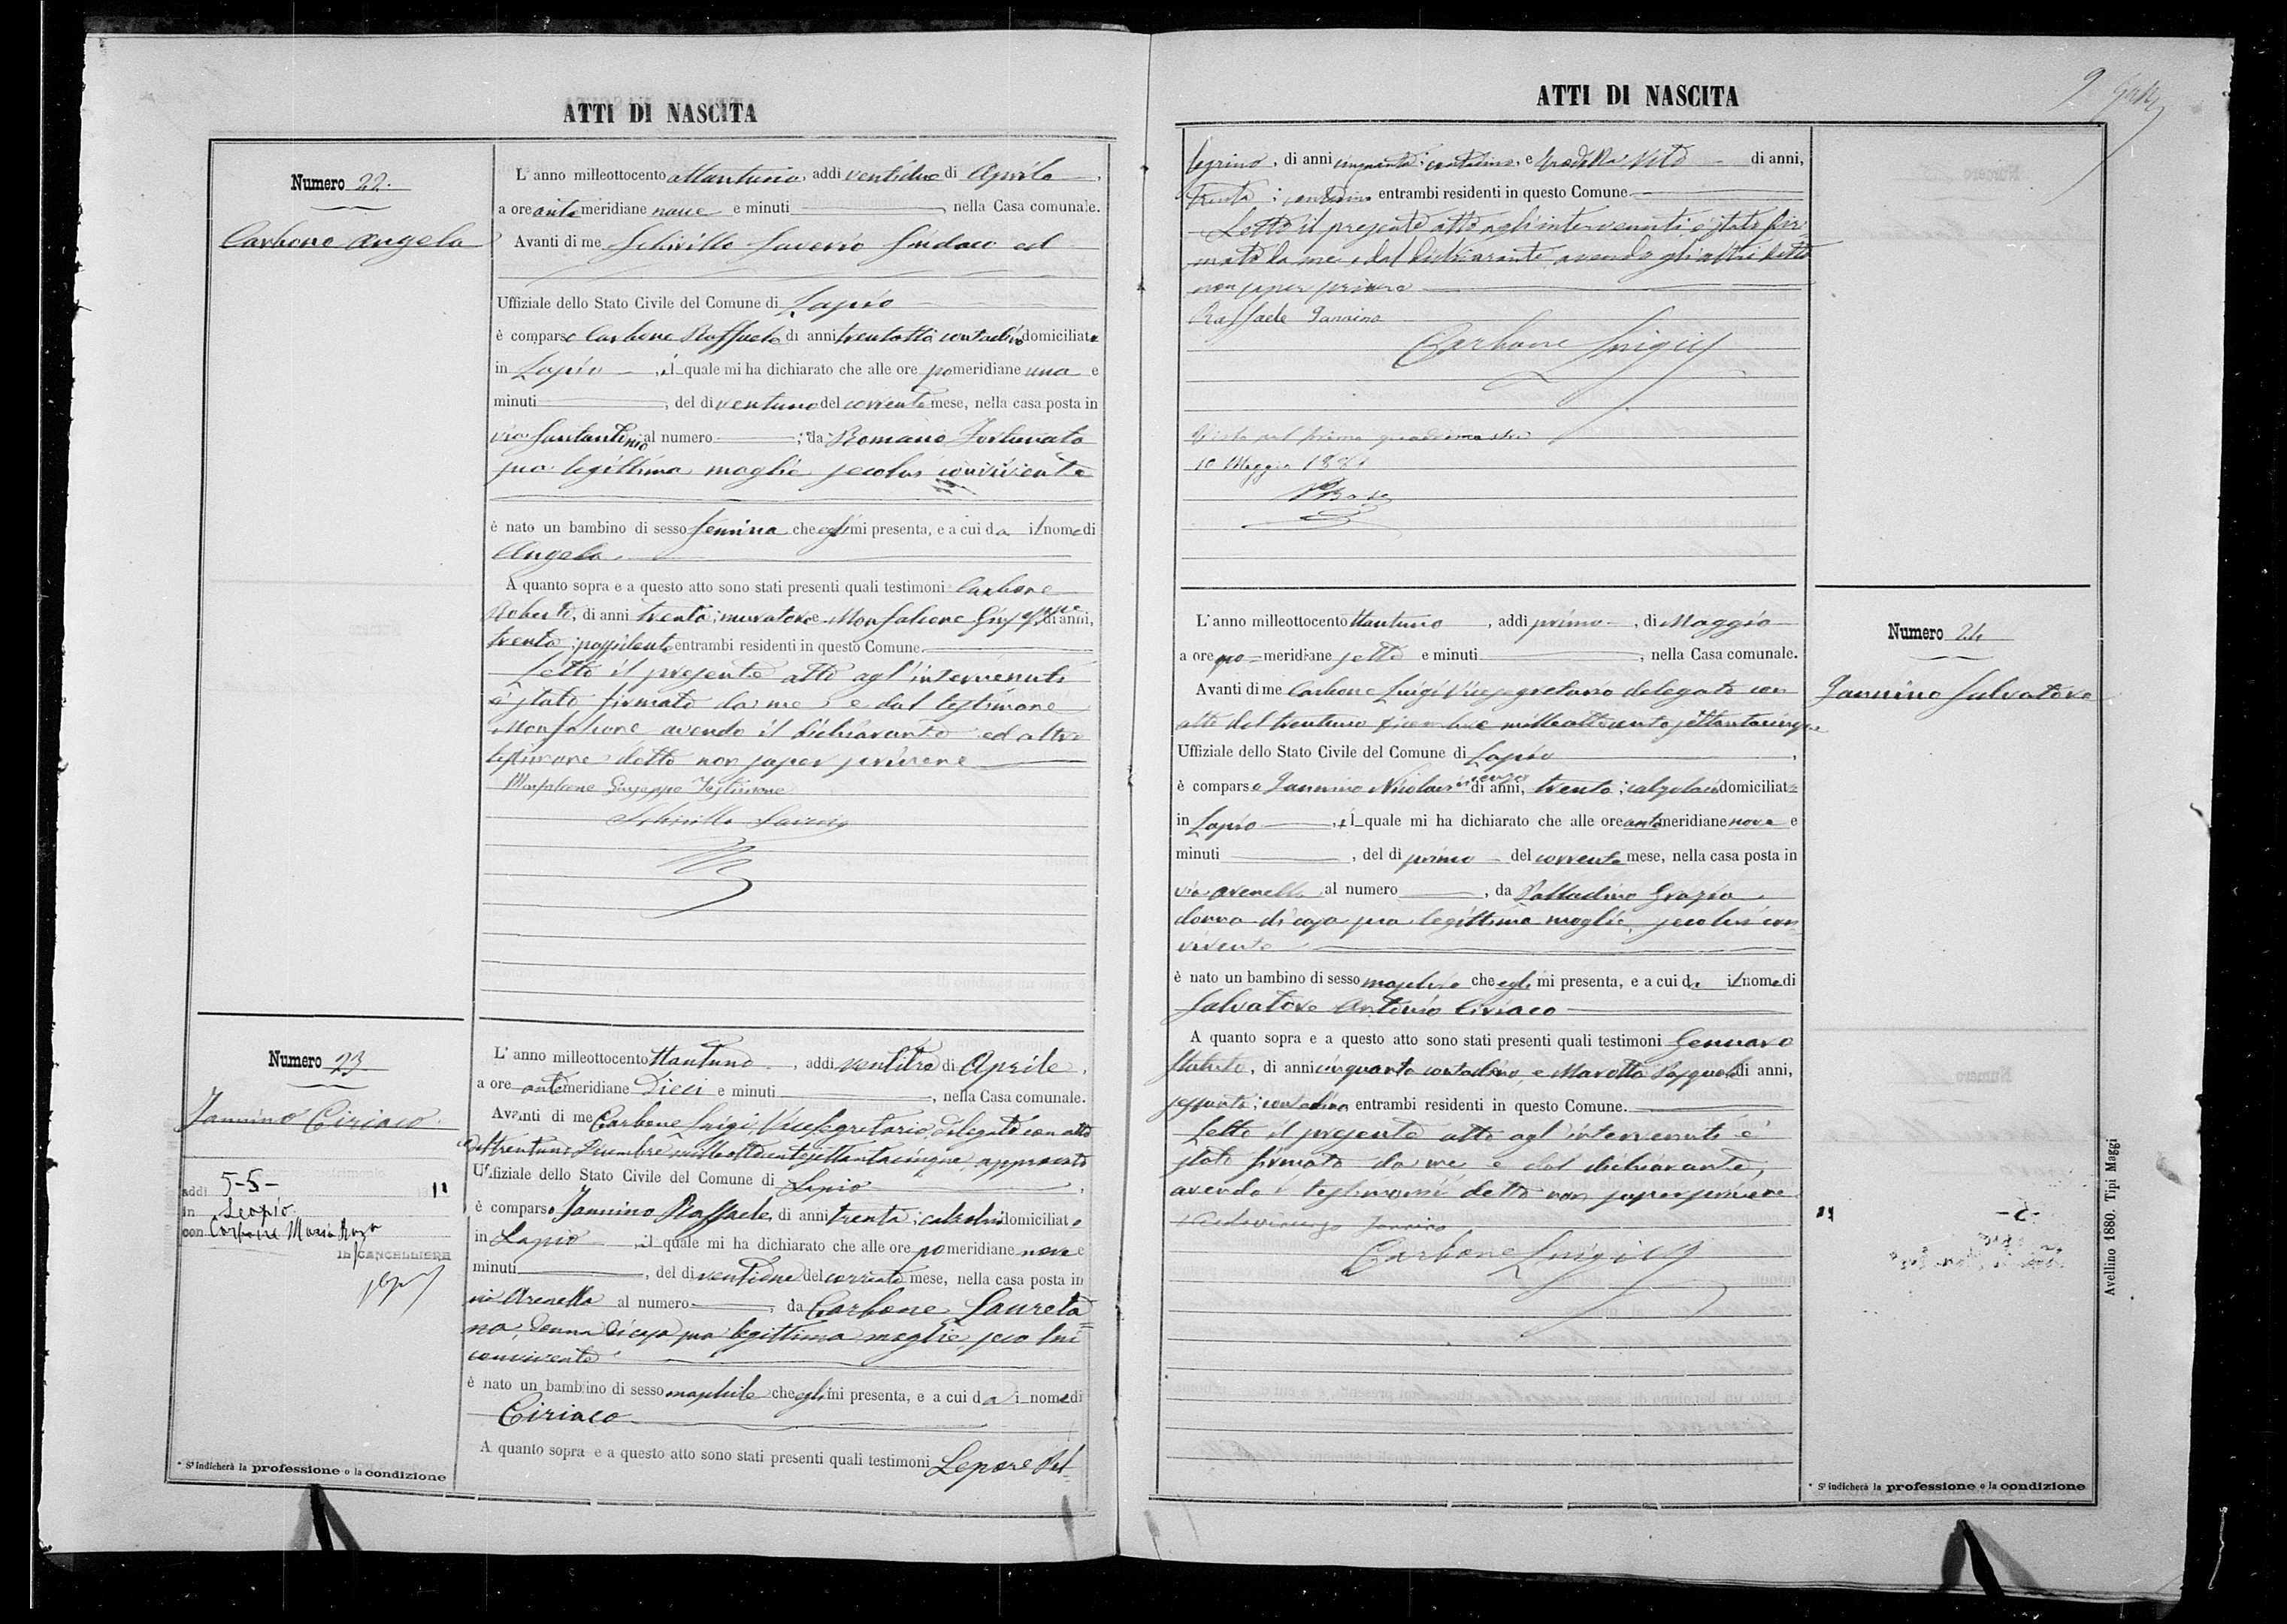 ATTI DI NASCITA
Numero 22.
Carbone Angela
L'anno milleottocento ottantuno, addi ventidue di Aprile,
a ore ante meridiane nove e minuti, nella Casa comunale.
Avanti di me Schirillo Saverio Sindaco ed
Uffiziale dello Stato Civile del Comune di Lapio
è comparso Carbone Raffaele di anni trentotto contadino domiciliato
in Lapio, il quale mi ha dichiarato che alle ore pomeridiane una e
minuti, del dì ventuno del corrente mese, nella casa posta in
via al numero, da Romano Fortunata
sua legittima moglie secolui convivente
è nato un bambino di sesso femina che egli mi presenta, e a cui da il nome di
Angela
A quanto sopra e a questo atto sono stati presenti quali testimoni Carbone
Roberto, di anni trenta, muratore e Monfalcone Giuseppe di anni,
trenta, possidente entrambi residenti in questo Comune.
Letto il presente atto agl'intervenuti
è stato firmato da me e dal testimone
Monfalcone avendo il dichiarante ed altro
testimone detto non saper scrivere
Monfalcone Giuseppe Testimone
Schirillo Saverio
Numero 23
Iannino Ciriaco
addi 5-5- 11
in Lapio
con Carbone Maria Rosa
IL CANCELLIERE
L'anno milleottocento ttantuno, addi ventitre di Aprile,
a ore antemeridiane Dieci e minuti, nella Casa comunale.
Avanti di me Carbone Luigi Vicesegretario delegato con atto
del trentuno Dicembre milleottocentosettantacinque approvato
Uffiziale dello Stato Civile del Comune di Lapio,
è comparso Iannino Raffaele, di anni trenta, calzolaio domiciliato
in Lapio, il quale mi ha dichiarato che alle ore pomeridiane nove e
minuti, del dì ventidue del corrente mese, nella casa posta in
via Arenella al numero, da Carbone Laureta=
na, Donna di casa sua legittima moglie seco lui
convivente
è nato un bambino di sesso maschile che egli mi presenta, e a cui da i nome di
Ciriaco
A quanto sopra e a questo atto sono stati presenti quali testimoni Lepore Pel-
* S'indicherà la professione o la condizione
ATTI DI NASCITA
9
legrino, di anni cinquanta, contadino, e Vito di anni,
trenta, contadino entrambi residenti in questo Comune.
Letto il presente atto agli intervenuti è stato fir-
mato da me e dal dichiarante avendo gli altri detto
non saper scrivere
Raffaele Iannino
Carbone Luigi
Visto pel primo quadrimestre
10 Maggio 1881
L'anno milleottocento ttantuno, addi primo, di Maggio
a ore po=meridiane sette e minuti, nella Casa comunale.
Avanti di me Carbone Luigi Vicesegretario delegato con
atto del trentuno Dicembre milleottocento settantacinque
Uffiziale dello Stato Civile del Comune di Lapio,
è comparso Iannino Nicolavincenzo di anni, trenta, calzolaio domiciliato
in Lapio, il quale mi ha dichiarato che alle ore antimeridiane nove e
minuti, del dì primo del corrente mese, nella casa posta in
via arenella al numero, da Palladino Grazia
donna di casa sua legittima moglie, secolui con
vivente
è nato un bambino di sesso maschile che egli mi presenta, e a cui da il nome di
Salvatore Antonio Ciriaco
A quanto sopra e a questo atto sono stati presenti quali testimoni Gennaro
, di anni cinquanta contadino, e Marotta Pasquale di anni,
sessanta, contadino entrambi residenti in questo Comune.
Letto il presente atto agl'intervenuti è
stato firmato da me e dal dichiarante,
avendo i testimoni detto non saper scrivere
Nicolavincenzo Iannino
Carbone Luigi
Numero 24
Iannino Salvatore
* S'indicherà la professione o la condizione
Avellino 1880. Tipi Maggi